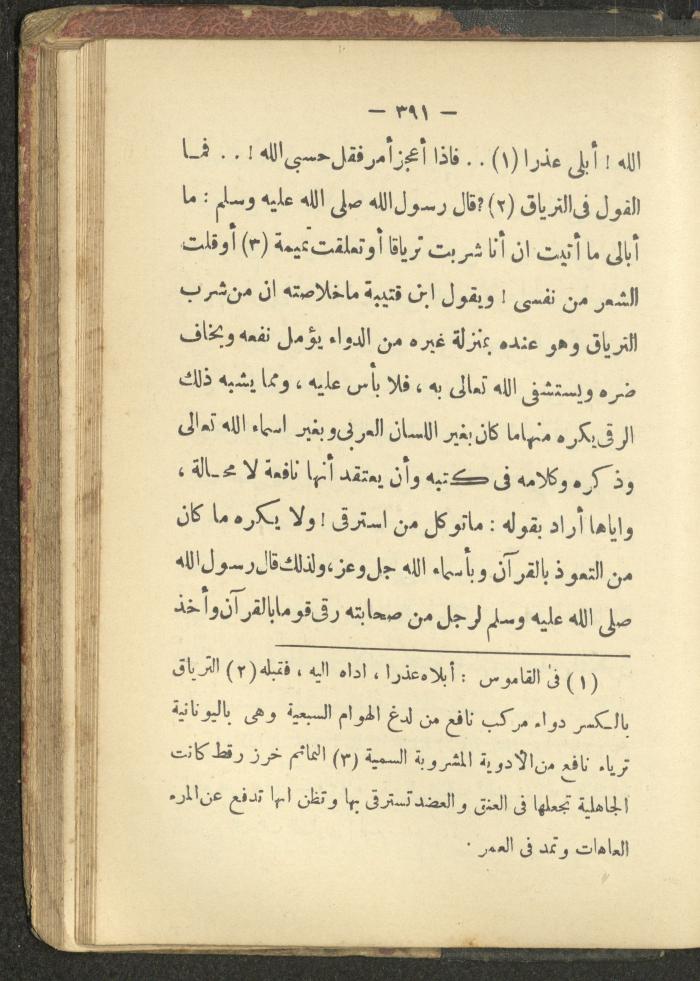 — ٣٩١ —
الله ! أبلى عذرا (١) . . فاذا أعجز أمر فقل حسبى الله ! . . فمـا
القول فى الترياق (٢) ? قال رسول الله صلى الله عليه وسلم : ما
أبالى ما أتيت ان أنا شربت ترياقا أو تعلقت تميمة (٣) أو قلت
الشعر من نفسى ! ويقول ابن قتيبة ما خلاصته ان من شرب
الترياق وهو عنده بمنزلة غيره من الدواء يؤمل نفعه ويخاف
ضره ويستشفى الله تعالى به ، فلا بأس عليه ، ومما يشبه ذلك
الرقى يكره منها ما كان بغير اللسان العربى وبغير اسماء الله تعالى
وذكره وكلامه فى كتبه وأن يعتقد أنها نافعة لا محـالة ،
واياها أراد بقوله : ما توكل من استرقى ! ولا يكره ما كان
من التعوذ بالقرآن وبأسماء الله جل وعز ، ولذلك قال رسول الله
صلى الله عليه وسلم لرجل من صحابته رقى قوما بالقرآن وأخذ
(١) فى القاموس : أبلاه عذرا ، اداه اليه ، فقبله (٢) الترياق
بالكسر دواء مركب نافع من لدغ الهوام السبعية وهى باليونانية
ترياء نافع من الأدوية المشروبة السمية (٣) التمائم خرز رقط كانت
الجاهلية تجعلها فى العنق والعضد تسترقى بها وتظن انها تدفع عن المرء
العاهات وتمد فى العمر .